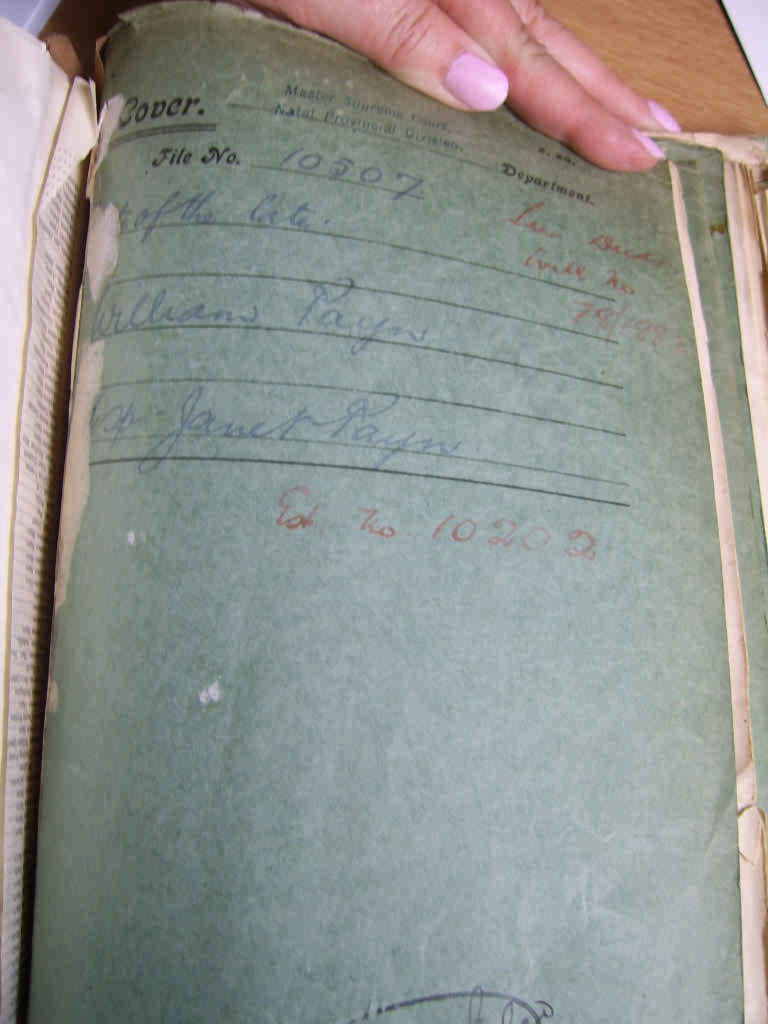 Cover.
Master Supreme Court,
Natal Provincial Division.
File No. 10507
Department.
of the late
Will No
William Payn
Janet Payn
Est. No. 10202